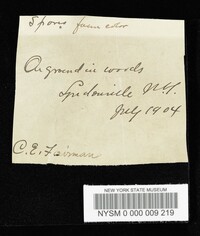 Spores
On ground in woods
Lyndonville N.Y.
July 1904
C. E. Fairman
NEW YORK STATE MUSEUM
NYSM 0 000 009 219